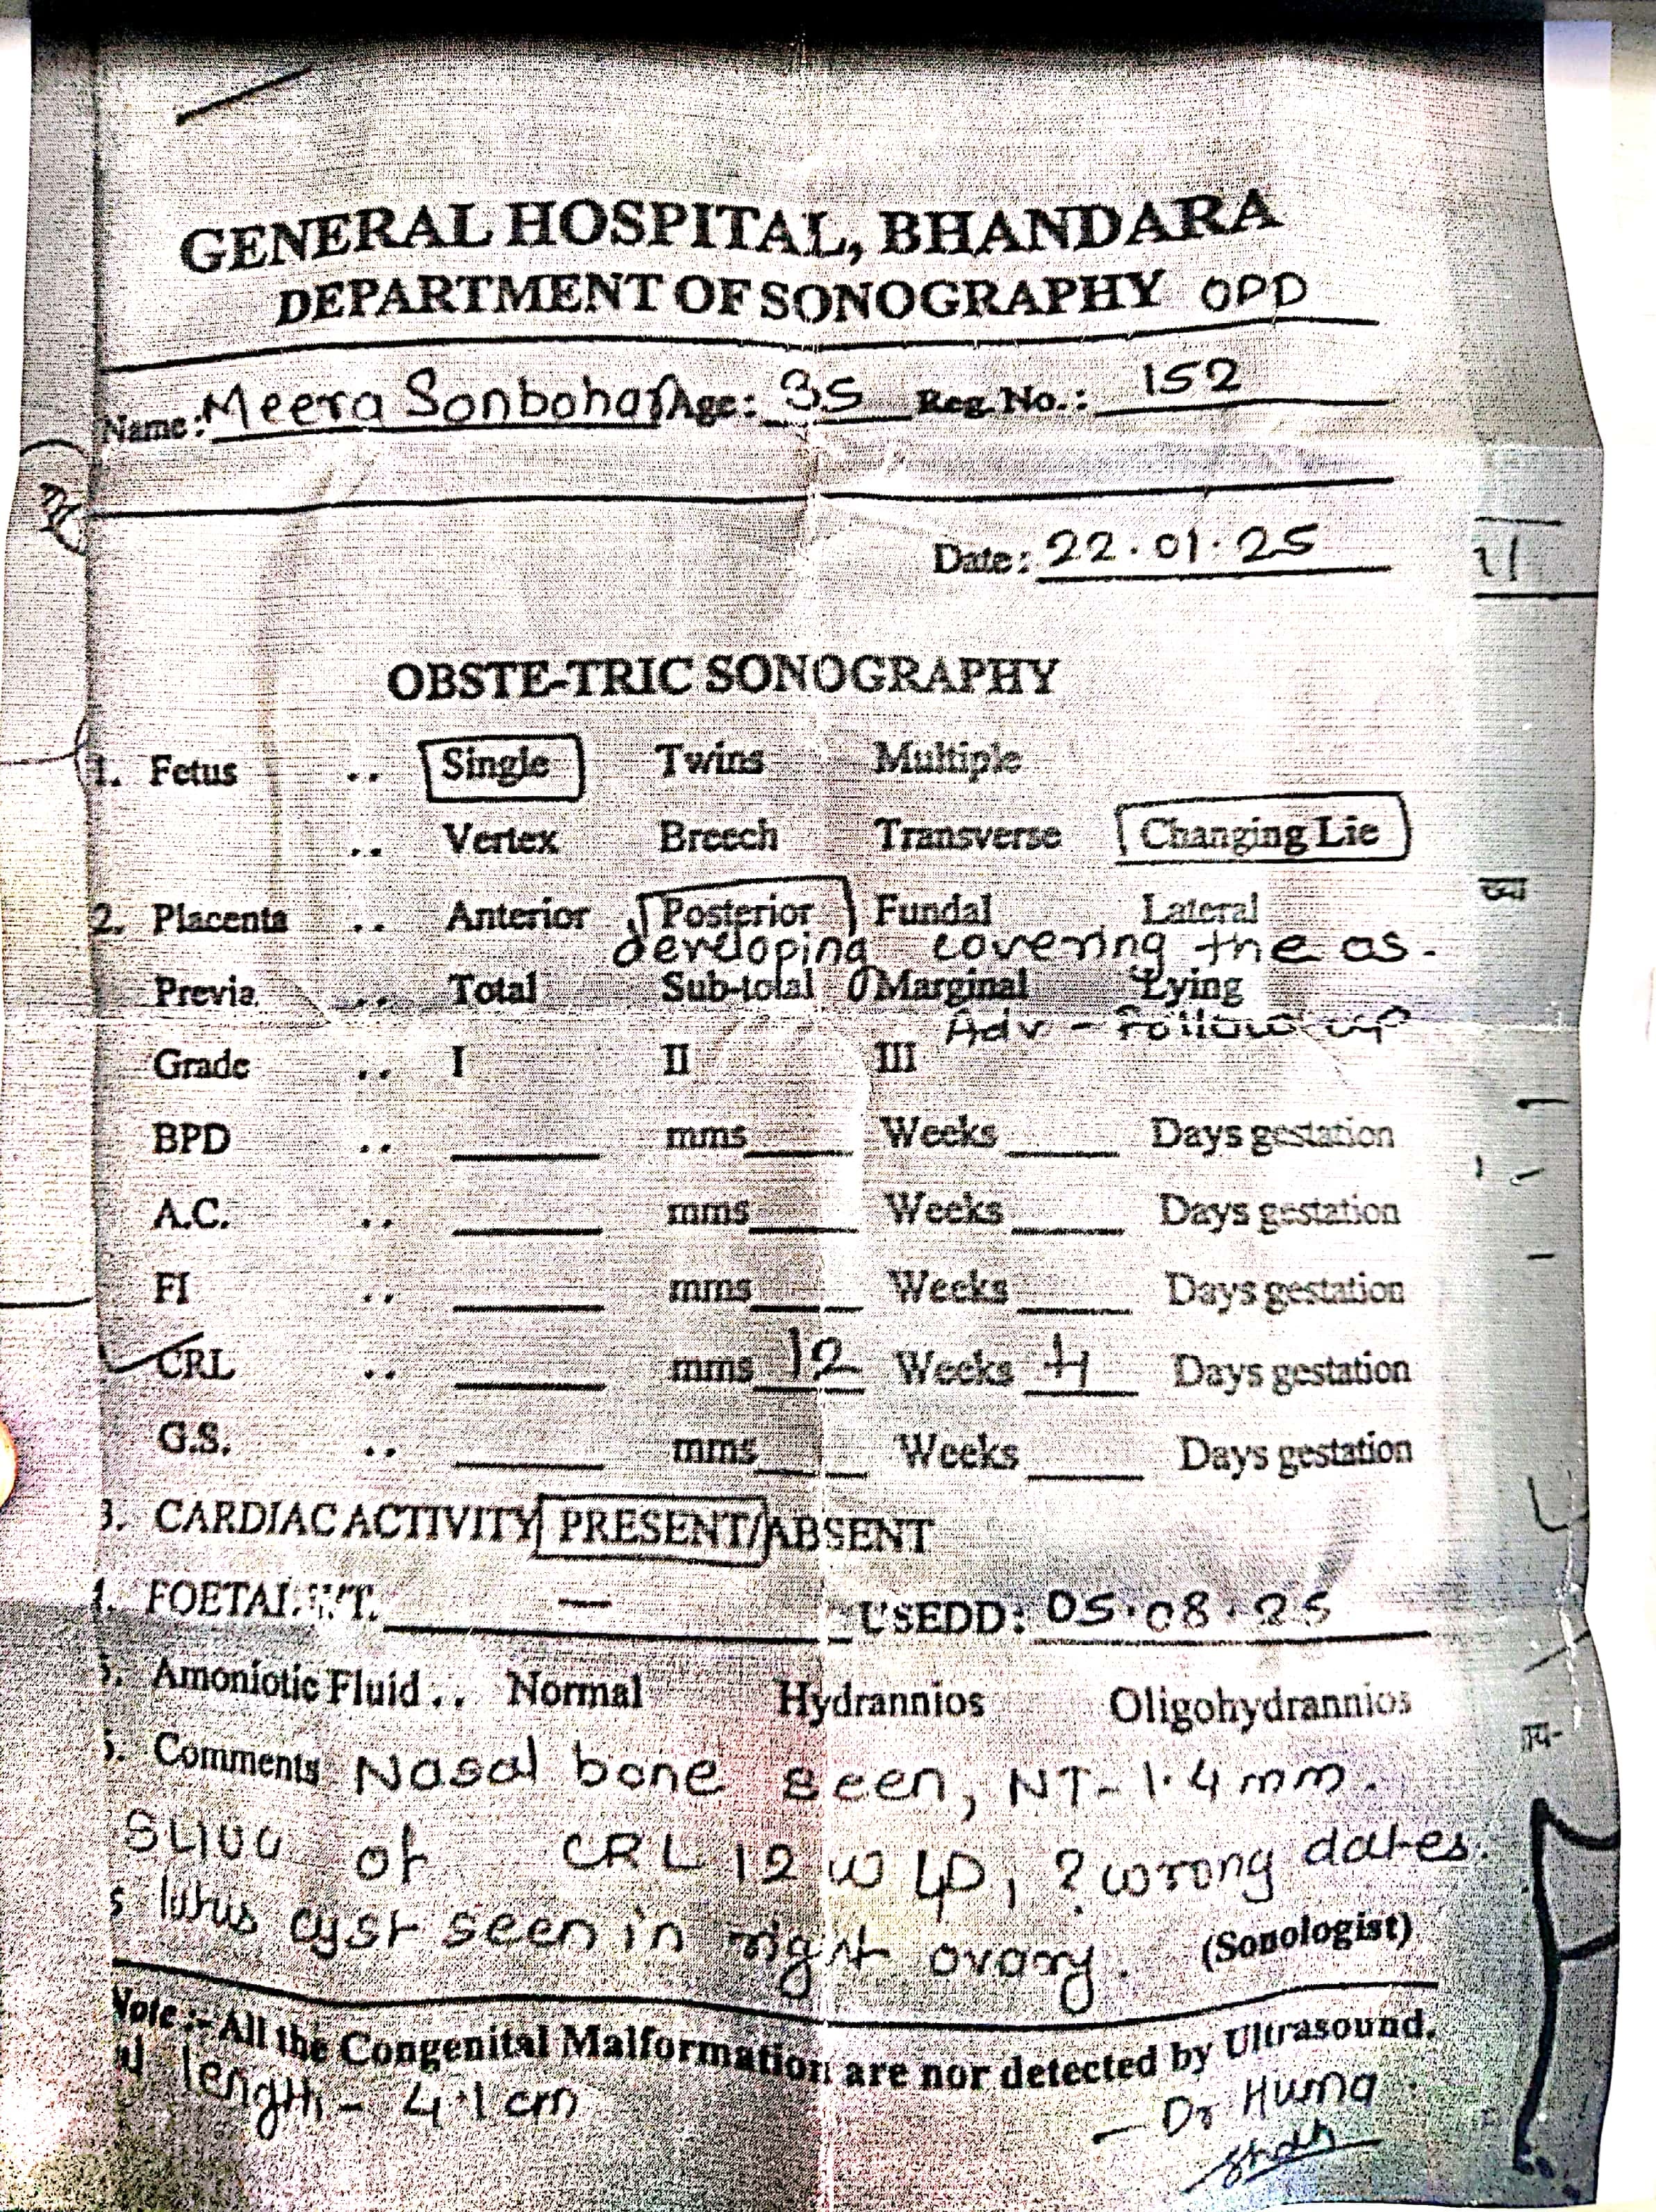 GENERAL HOSPITAL, BHANDARA
DEPARTMENT OF SONOGRAPHY OPD
Name: Meera Age: 35 Reg. No.: 152
Date: 22.01.25
OBSTE-TRIC SONOGRAPHY
1. Fetus .. Single Twins Multiple
.. Vertex Breech Transverse Changing Lie
2. Placenta .. Anterior Posterior Fundal Lateral
developing covering the os.
Previa .. Total Sub-total Marginal Lying
Adv - Follow up
Grade .. I II III
BPD .. mms Weeks Days gestation
A.C. .. mms Weeks Days gestation
Fl .. mms Weeks Days gestation
CRL .. mms 12 Weeks 4 Days gestation
G.S. .. mms Weeks Days gestation
3. CARDIAC ACTIVITY PRESENT/ABSENT
FOETAL WT. — USEDD: 05.08.25
Amoniotic Fluid .. Normal Hydrannios Oligohydrannios
Comments Nasal bone seen, NT-1.4mm.
of CRL 12 W 4D, ? wrong dates.
cyst seen in right ovary. (Sonologist)
Note :- All the Congenital Malformation are nor detected by Ultrasound.
length - 4.1cm
— Dr Huma